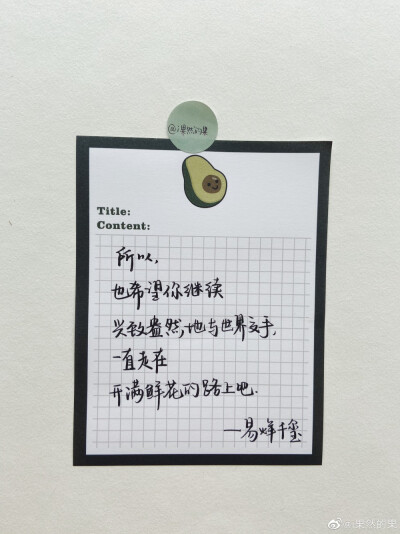 @i果然的果
Title:
Content:
所以,
也希望你继续
兴致盎然地与世界交手,
一直走在
开满鲜花的路上吧.
—易烊千玺
@i果然的果